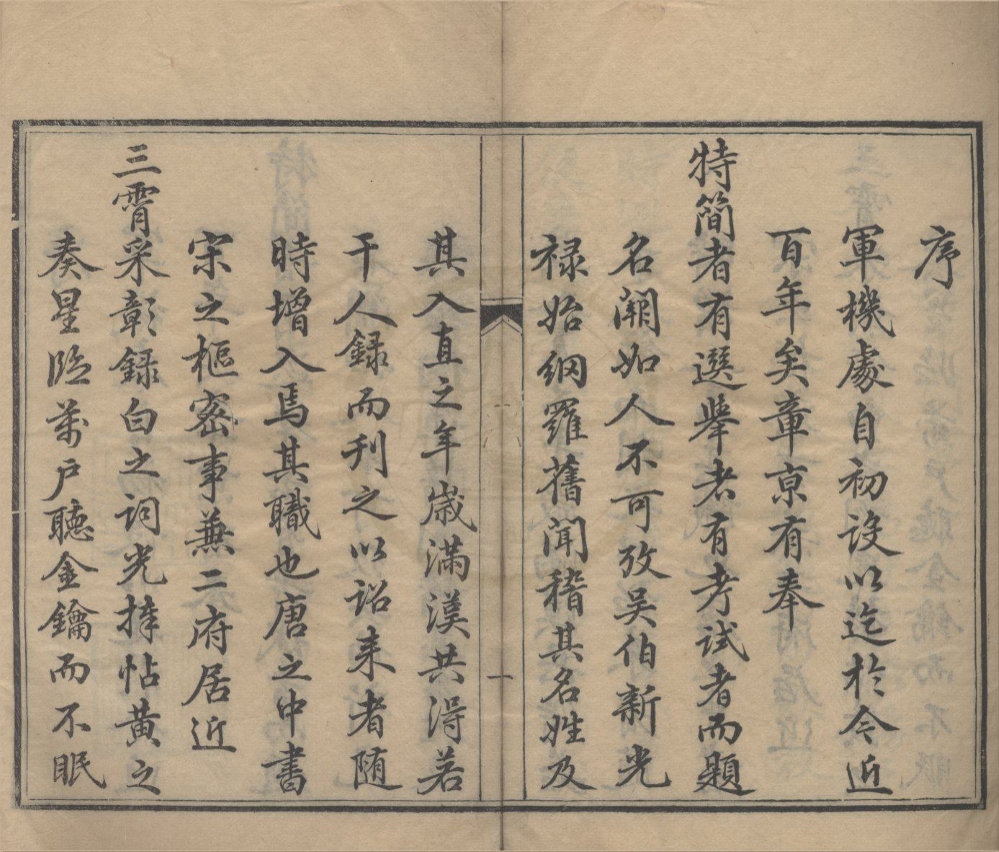 序
軍機處自初設以迄於今近
百年矣章京有奉
特簡者有選舉者有考試者而題
名闕如人不可攷吴伯新光
禄始網羅舊聞稽其名姓及
其入直之年歲滿漢共得若
干人録而刊之以詒来者随
時增入焉其職也唐之中書
宋之樞密事兼二府居近
三霄采彰録白之詞光捧帖黄之
奏星臨萬户聽金鑰而不眠
一